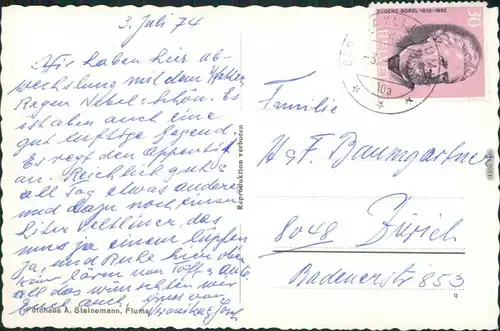 3. Juli 74
Wir haben hier ab-
wechslung mit dem Wetter
Regen Nebel schön. Es
ist aber auch eine
gut luftige Gegend.
Es regt den Appentit
an. Reichlich gut &
all Tag etwas anderes
und dazu noch einen
liter Veltliner, das
muss ja einem lüpfen
ja, und Ruhe hier oben
kein lärm von Töff & Auto
all das wünschen wir
Euch auch. Gruss von
Fotohaus A. Steinemann, Flums
Reproduktion verboten
EUGENE BOREL 1835-1892
30
HELVETIA
10a
Familie
H & F. Baumgartner
8048 Zürich
Badenerstr 853